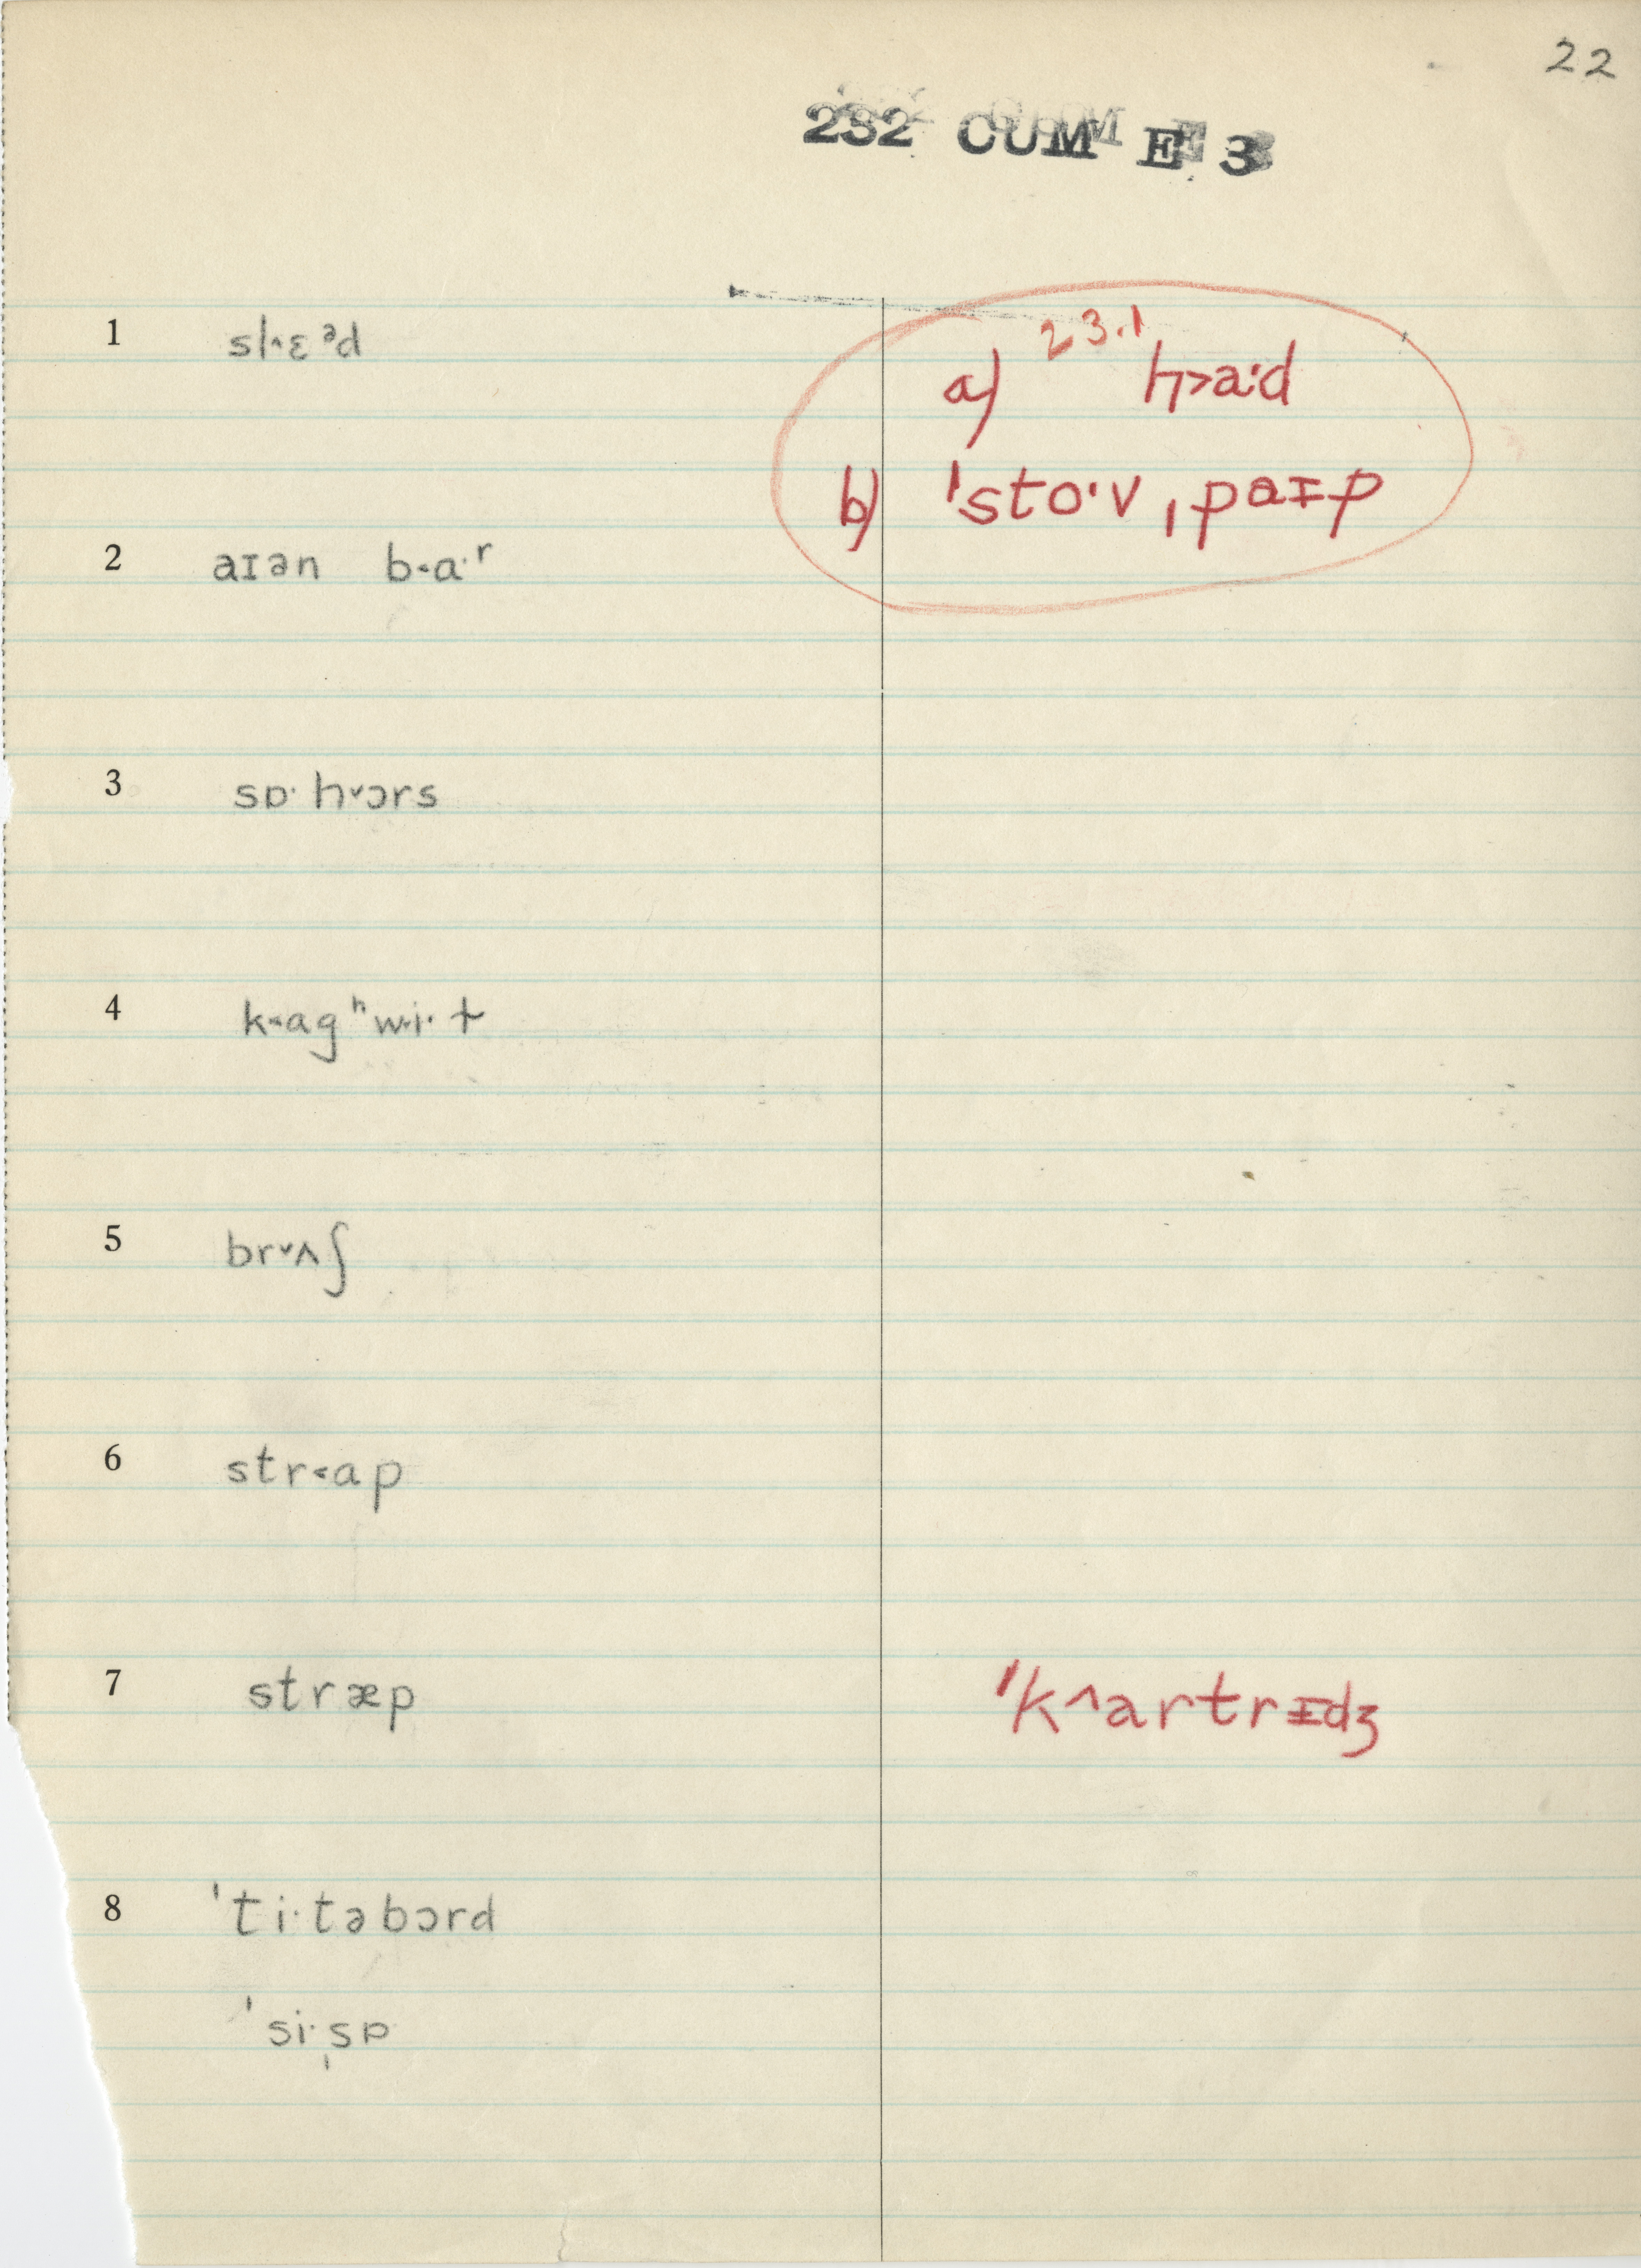 22
232 CUM E 3
1 sl^ɛᵊd
23.1
a) h>a·d
b) ˈsto·v ˌpaɪp
2 aɪən b<a·ʳ
3 sɒ· h˅ɔrs
4 k<agʰw<i·t
5 br˅ʌʃ
6 str<ap
7 stræp ˈk^artrɪdʒ
8 ˈti·təbɔrd
ˈsi·ˌsɒ